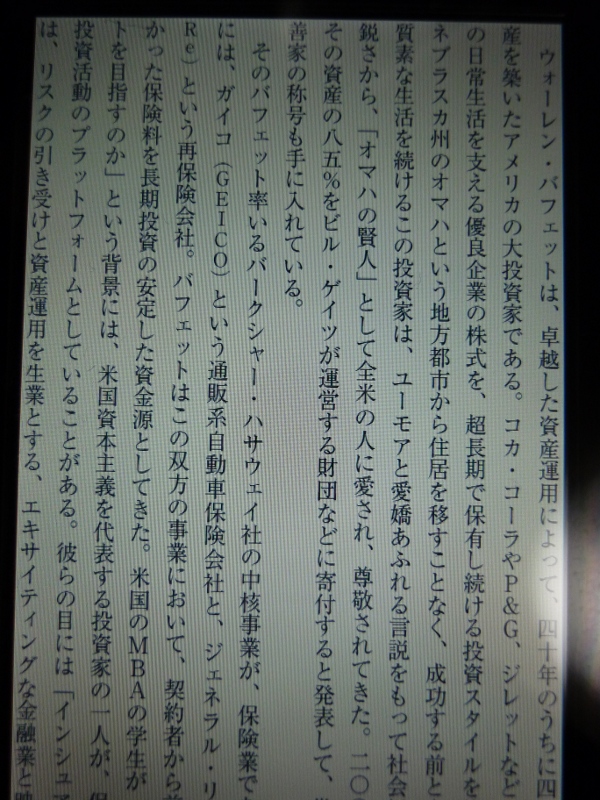 ウォーレン・バフェットは、卓越した資産運用によって、四十年のうちに四
産を築いたアメリカの大投資家である。コカ・コーラやP&G、ジレットなど
の日常生活を支える優良企業の株式を、超長期で保有し続ける投資スタイルを
ネブラスカ州のオマハという地方都市から住居を移すことなく、成功する前と
質素な生活を続けるこの投資家は、ユーモアと愛嬌あふれる言説をもって社会
鋭さから、「オマハの賢人」として全米の人に愛され、尊敬されてきた。二〇〇
その資産の八五%をビル・ゲイツが運営する財団などに寄付すると発表して、
善家の称号も手に入れている。
そのバフェット率いるバークシャー・ハサウェイ社の中核事業が、保険業で
には、ガイコ（GEICO）という通販系自動車保険会社と、ジェネラル・リ
Re）という再保険会社。バフェットはこの双方の事業において、契約者から
かった保険料を長期投資の安定した資金源としてきた。米国のMBAの学生が
トを目指すのか」という背景には、米国資本主義を代表する投資家の一人が、保
投資活動のプラットフォームとしていることがある。彼らの目には「インシュア
は、リスクの引き受けと資産運用を生業とする、エキサイティングな金融業と映